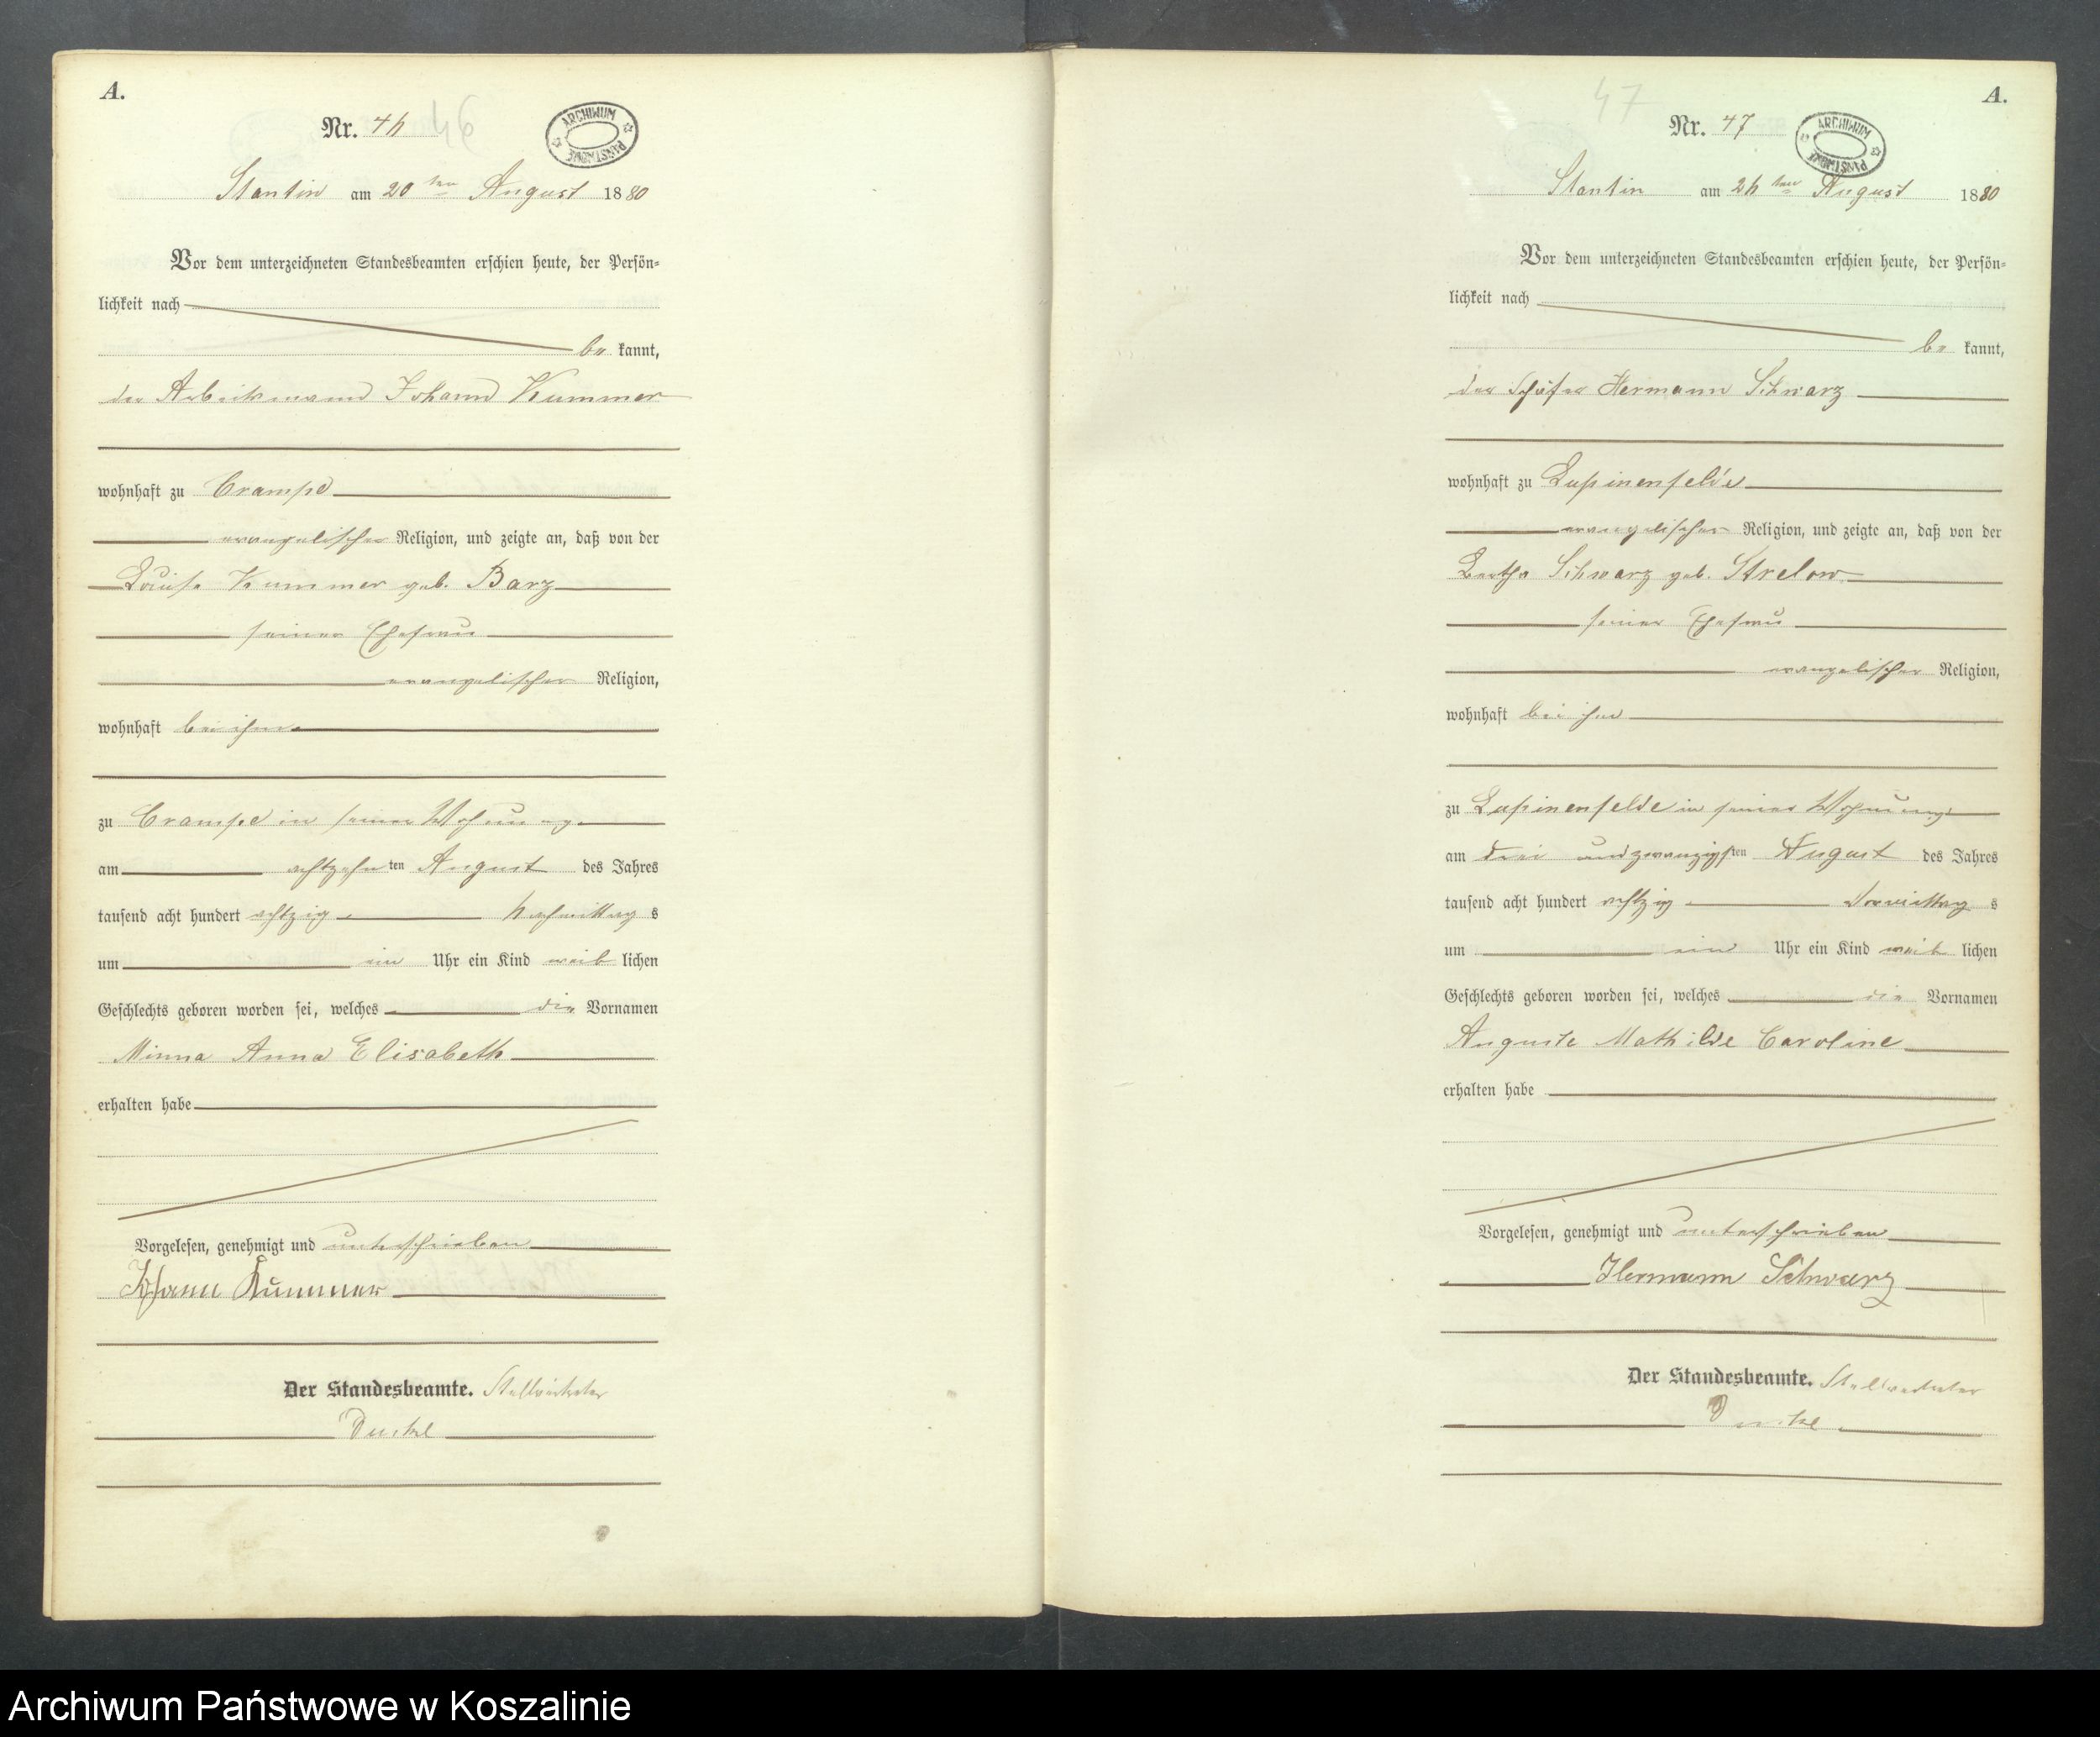 A.
Nr. 46 46
ARCHIWUM PAŃSTWOWE
Stantin am 20ten August 1880
Vor dem unterzeichneten Standesbeamten erschien heute, der Persön=
lichkeit nach
be kannt,
der Arbeitsmann Johann Kummer
wohnhaft zu Crampe
evangelischer Religion, und zeigte an, daß von der
Louise Kummer geb. Barz
seiner Ehefrau
evangelischer Religion,
wohnhaft bei ihm
zu Crampe in seiner Wohnung
am achtzehnten August des Jahres
tausend acht hundert achtzig Nachmittag s
um ein Uhr ein Kind weib lichen
Geschlechts geboren worden sei, welches die Vornamen
Minna Anna Elisabeth
erhalten habe
Vorgelesen, genehmigt und unterschrieben
Johann Kummer
Der Standesbeamte. Stellvertreter
A.
47
Nr. 47
ARCHIWUM PAŃSTWOWE
Stantin am 26ten August 1880
Vor dem unterzeichneten Standesbeamten erschien heute, der Persön=
lichkeit nach
be kannt,
der Schäfer Hermann Schwarz
wohnhaft zu Lupinenfelde
evangelischer Religion, und zeigte an, daß von der
Bertha Schwarz geb. Strelow
seiner Ehefrau
evangelischer Religion,
wohnhaft bei ihm
zu Lupinenfelde in seiner Wohnung
am drei und zwanzigsten August des Jahres
tausend acht hundert achtzig Vormittag s
um ein Uhr ein Kind weib lichen
Geschlechts geboren worden sei, welches die Vornamen
Auguste Mathilde Caroline
erhalten habe
Vorgelesen, genehmigt und unterschrieben
Hermann Schwarz
Der Standesbeamte. Stellvertreter
Archiwum Państwowe w Koszalinie